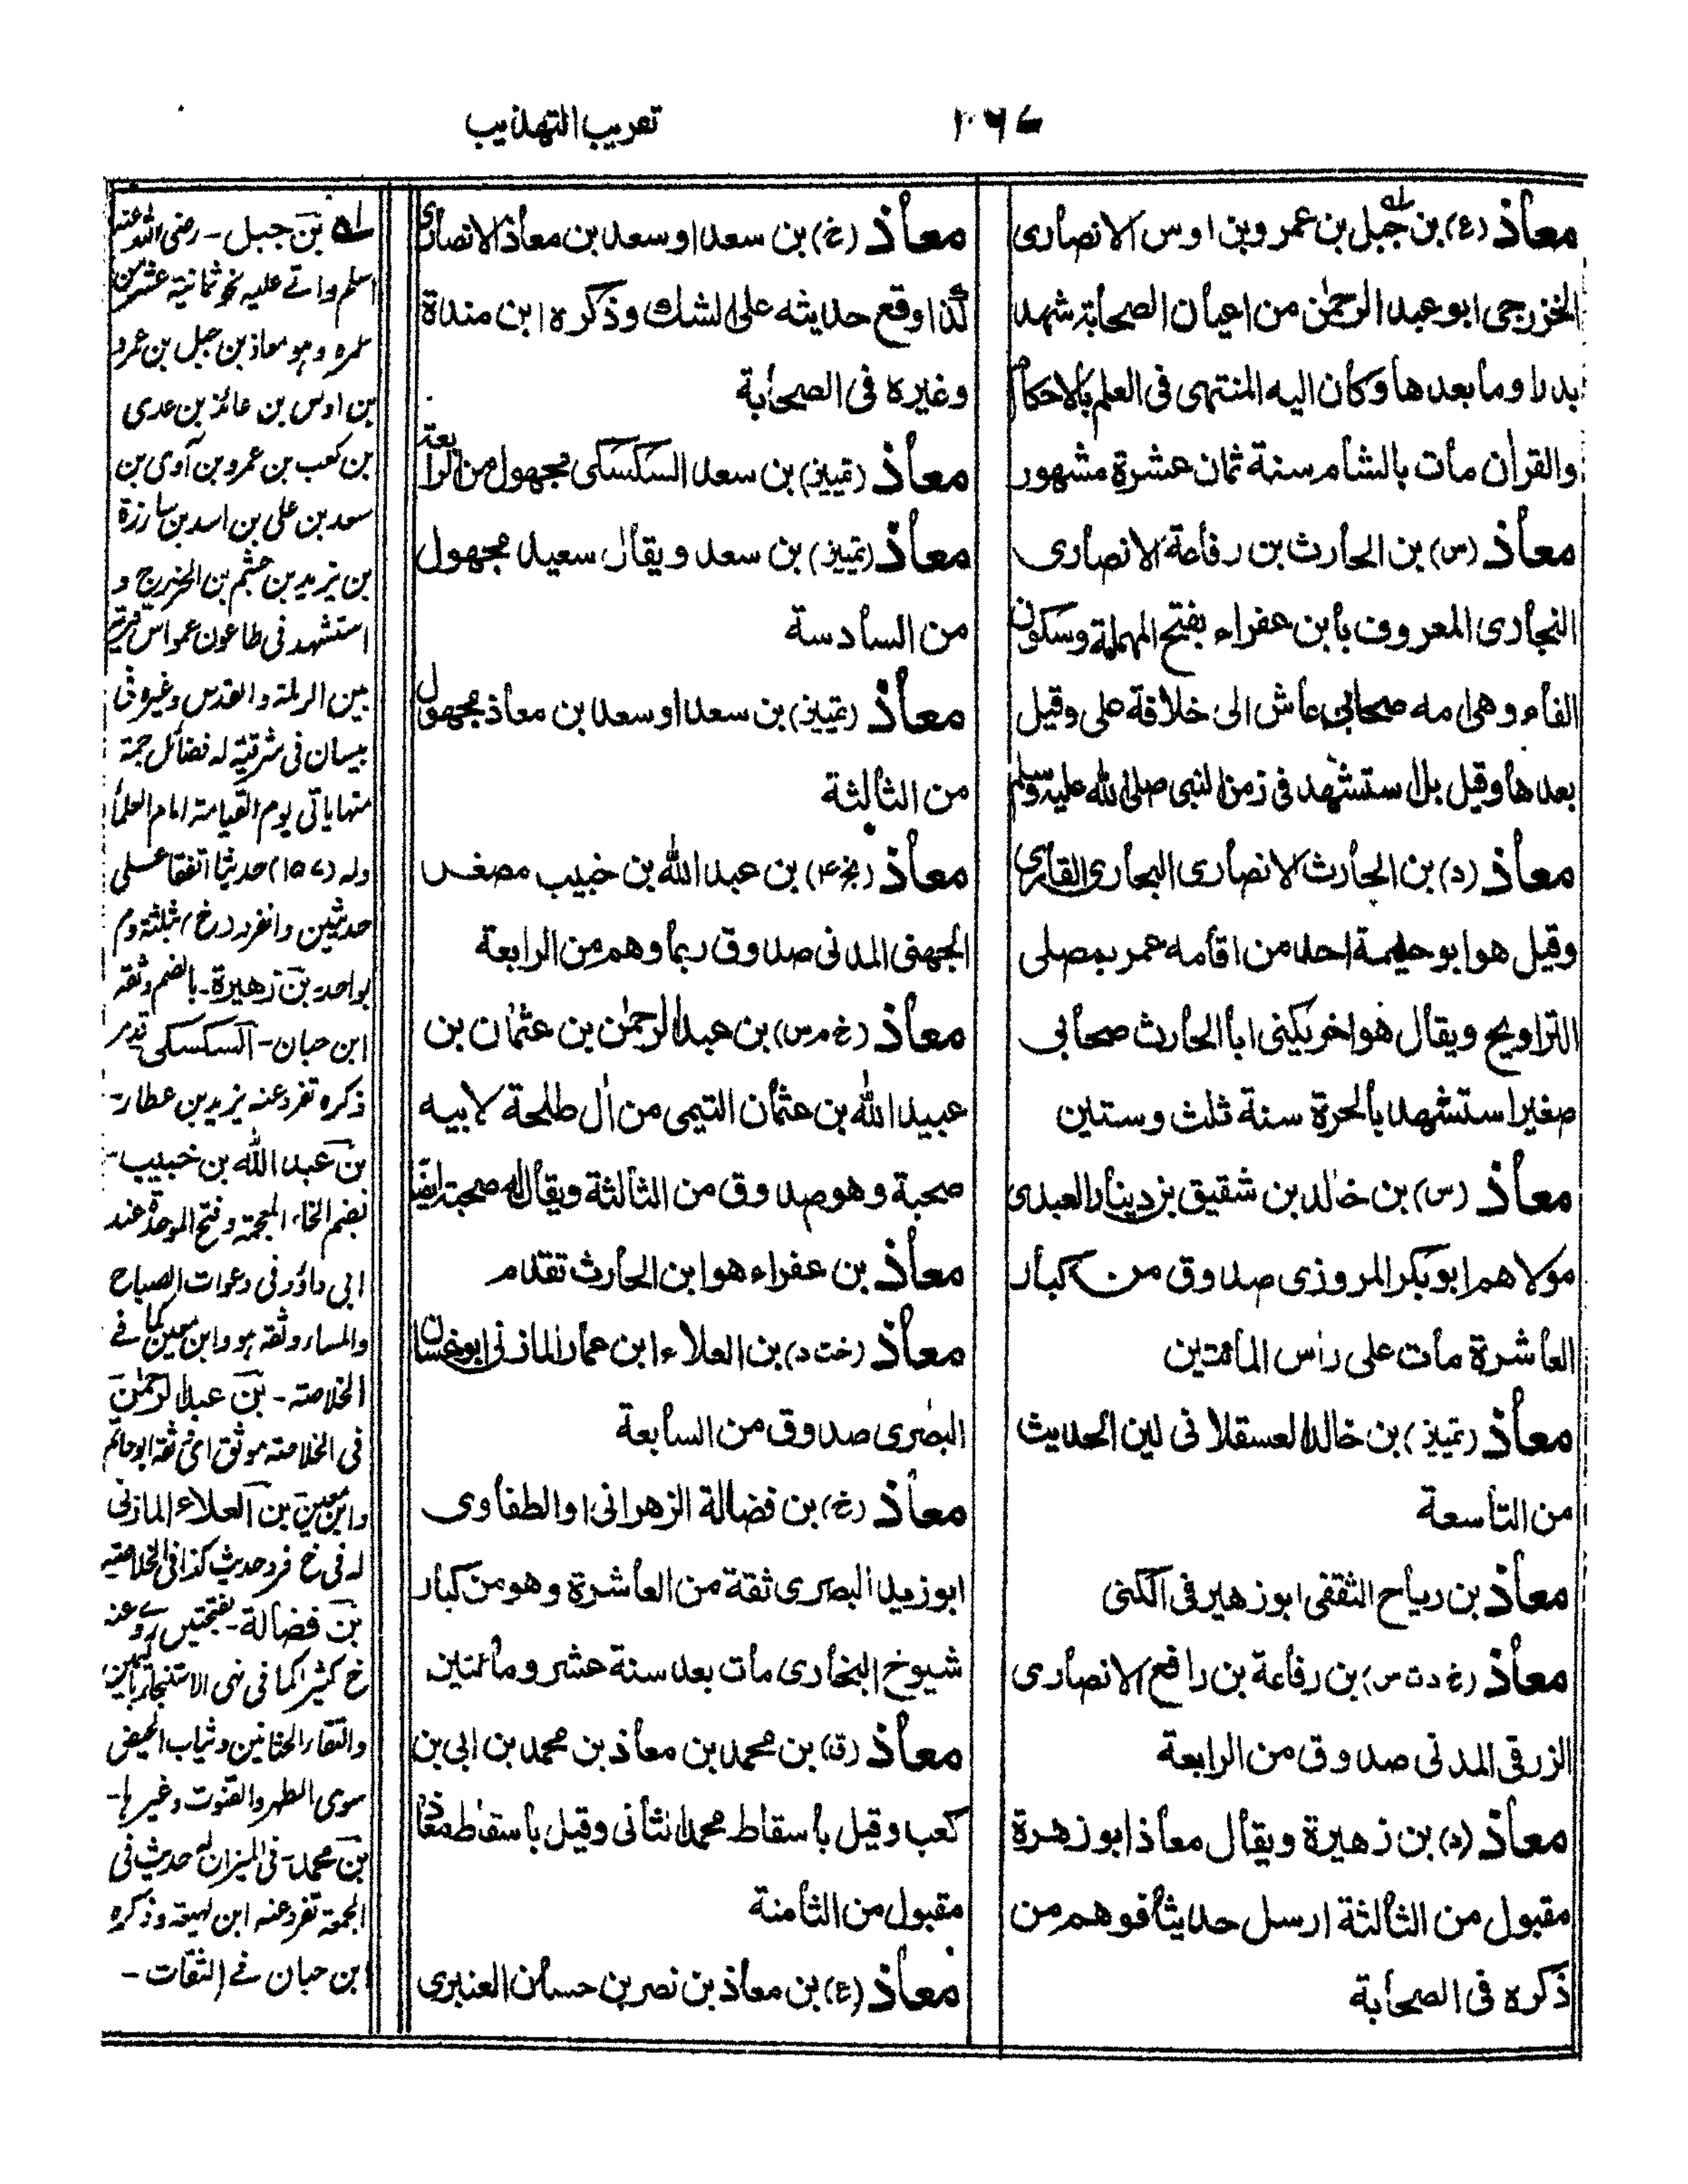 تعريب التهذيب
معاذ (ع) بن جبل بن عمرو بن اوس الانصارى
الخزرجى ابو عبد الرحمٰن من اعيان الصحابة شهد
بدرا وما بعدها وكان اليه المنتهى فى العلم بالاحكام
والقراٰن مات بالشام سنة ثمان عشرة مشهور
معاذ (س) بن الحارث بن رفاعة الانصارى
النجارى المعروف بابن عفراء بفتح المهملة وسكون
الفاء وهى امه صحابى عاش الى خلافة على وقيل
بعدها وقيل بل استشهد فى زمن النبى صلى الله عليه وسلم
معاذ (د) بن الحارث الانصارى النجارى القارى
وقيل هو ابو حليمة احد من اقامه عمر بمصلى
التراويح ويقال هو اخر يكنى ابا الحارث صحابى
صغير استشهد بالحرة سنة ثلث وستين
معاذ (س) بن خالد بن شقيق بن دينار العبدى
مولاهم ابو بكر المروزى صدوق من كبار
العاشرة مات على راس المائتين
معاذ (تمييز) بن خالد العسقلانى لين الحديث
من التاسعة
معاذ بن رياح الثقفى ابو زهير فى الكنى
معاذ (خ د ت س) بن رفاعة بن رافع الانصارى
الزرقى المدنى صدوق من الرابعة
معاذ (د) بن زهيرة ويقال معاذ ابو زهرة
مقبول من الثالثة ارسل حديثا فوهم من
ذكره فى الصحابة
معاذ (خ) بن سعد او سعد بن معاذ الانصارى
كذا وقع حديثه على الشك وذكره ابن مندة
وغيره فى الصحابة
معاذ (تمييز) بن سعد السكسكى مجهول من الرابعة
معاذ (تمييز) بن سعد ويقال سعيد مجهول
من السادسة
معاذ (تمييز) بن سعد او سعد بن معاذ مجهول
من الثالثة
معاذ (بخ ۴) بن عبد الله بن خبيب مصغر
الجهنى المدنى صدوق ربما وهم من الرابعة
معاذ (خ م س) بن عبد الرحمٰن بن عثمٰن بن
عبيد الله بن عثمان التيمى من اٰل طلحة لابيه
صحبة وهو صدوق من الثالثة ويقال له صحبة ايضا
معاذ بن عفراء هو ابن الحارث تقدم
معاذ (خت د) بن العلاء ابن عمار المازنى ابو غسان
البصرى صدوق من السابعة
معاذ (خ) بن فضالة الزهرانى او الطفاوى
ابو زيد البصرى ثقة من العاشرة وهو من كبار
شيوخ البخارى مات بعد سنة عشر ومائتين
معاذ (ق) بن محمد بن معاذ بن محمد بن ابى بن
كعب وقيل باسقاط محمد الثانى وقيل باسقاط معاذ
مقبول من الثامنة
معاذ (ع) بن معاذ بن نصر بن حسان العنبرى
له بن جبل - رضى الله عنه
اسلم واتے عليه نحو ثمانية عشر من
عمره وهو معاذ بن جبل بن عمرو
بن اوس بن عائذ بن عدى
بن كعب بن عمرو بن آوى بن
سعد بن على بن اسد بن ساردة
بن تزيد بن جشم بن الخزرج و
استشهد فى طاعون عمواس قرية
بين الرملة والقدس وغيره فى
بيسان فى شرقية له فضائل جمة
منها ياتى يوم القيامة امام العلماء
وله (١٥٧) حديثا اتفقا على
حديثين وانفرد (خ) بثلثة وم
بواحد بن زهيرة - بالضم وثقه
ابن حبان - السكسكى
ذكره تفرد عنه يزيد بن عطار -
بن عبد الله بن خبيب -
بضم الخاء المعجمة وفتح الموحدة عند
ابى داؤد فى دعوات الصباح
والمساء وثقه هو وابن معين كما فے
الخلاصة - بن عبد الرحمٰن
فى الخلاصة موثق اى ثقة ابو حاتم
وابن معين بن العلاء المازنى
له فى خ فرد حديث كذا فى الخلاصة
بن فضالة - بفتحتين روے عنه
خ كثيرا كما فى نهى الاستنجاء باليمين
والتقاء الختانين وثياب الحيض
سوى الطهر والقنوت وغيرها -
بن محمد - فى الميزان له حديث فى
الجمعة تفرد عنه ابن لهيعة وذكره
ابن حبان فے الثقات -